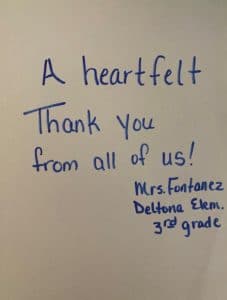 A heartfelt
Thank you
from all of us!
Mrs. Fontanez
Deltona Elem.
3rd grade